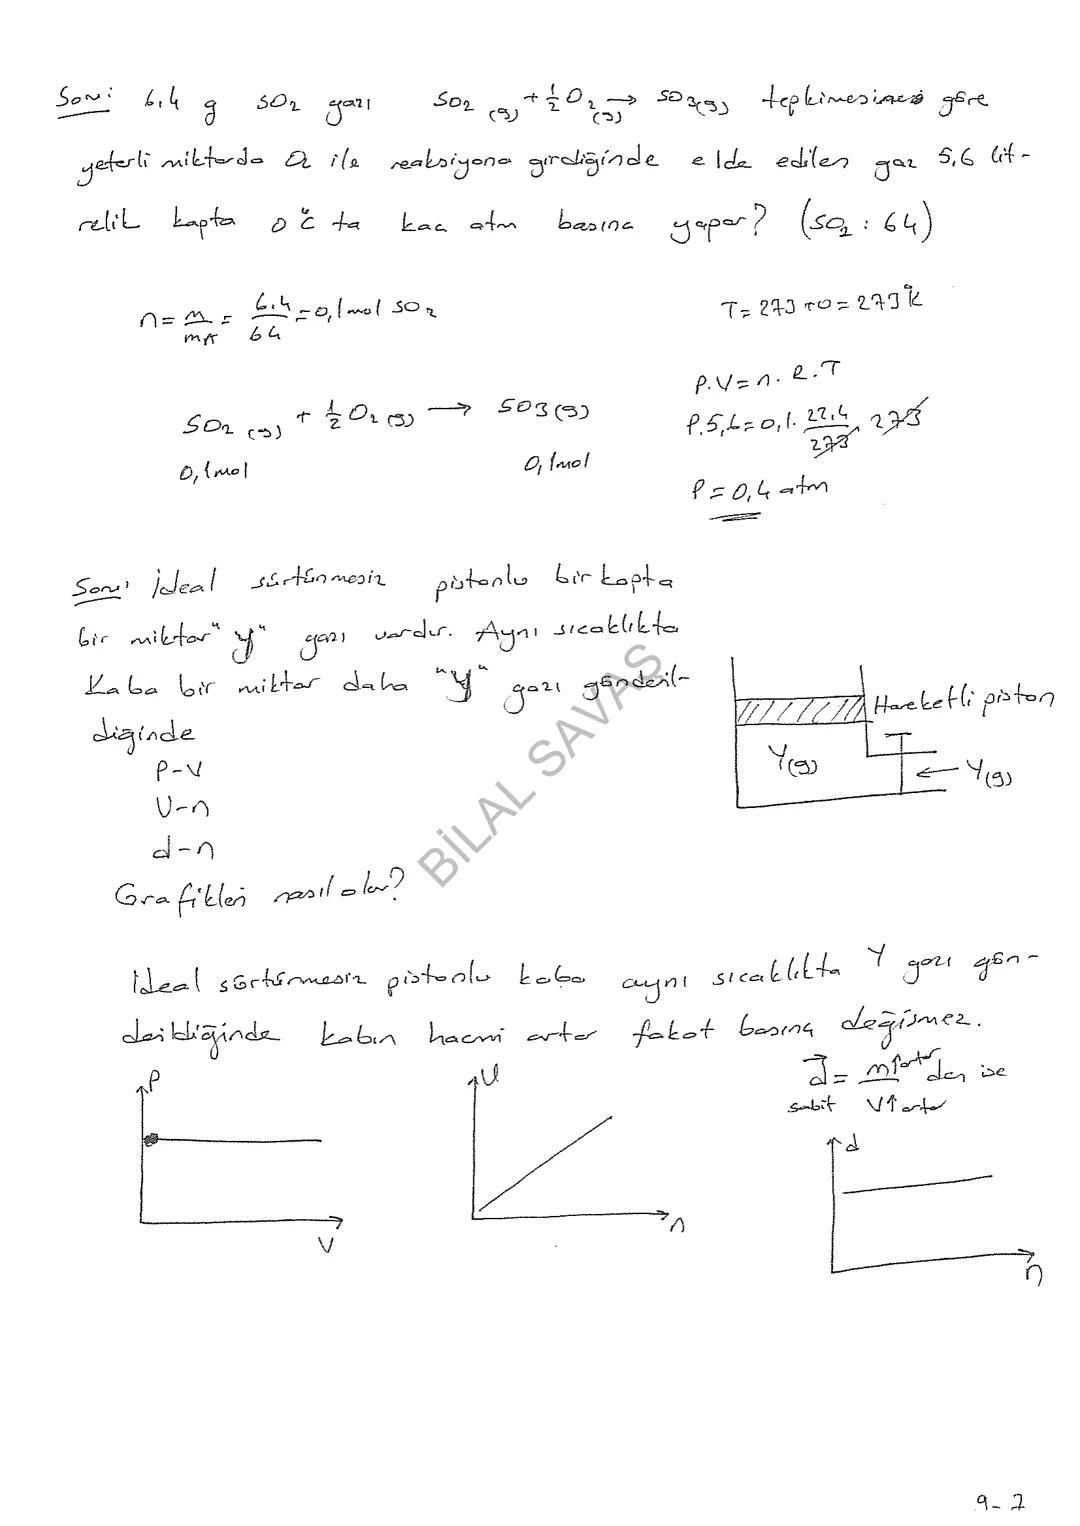 Soru: 6,4 g SO2 gazı SO2 (g) + 1/2 O2 (g) → SO3(g) tepkimesine göre
yeterli miktarda O2 ile reaksiyona girdiğinde elde edilen gaz 5,6 lit-
relik kapta 0°C ta kaç atm basınç yapar? (SO2 : 64)
n = m/mA = 6,4/64 = 0,1 mol SO2
T = 273 + 0 = 273°K
P.V = n.R.T
SO2 (g) + 1/2 O2 (g) → SO3 (g)
P.5,6 = 0,1. 22,4/273 . 273
0,1mol 0,1mol
P = 0,4 atm
Soru: İdeal sürtünmesiz pistonlu bir kapta
bir miktar "Y" gazı vardır. Aynı sıcaklıkta
Kaba bir miktar daha "Y" gazı gönderil-
diğinde
P-V
V-n
d-n
Grafikleri nasıl olur?
Hareketli piston
Y(g)
← Y(g)
BİLAL SAVAŞ
İdeal sürtünmesiz pistonlu kaba aynı sıcaklıkta Y gazı gön-
derildiğinde kabın hacmi artar fakat basınç değişmez.
d = m↑ artar / V↑ artar den ise
sabit
P
V
V
n
d
n
9-7